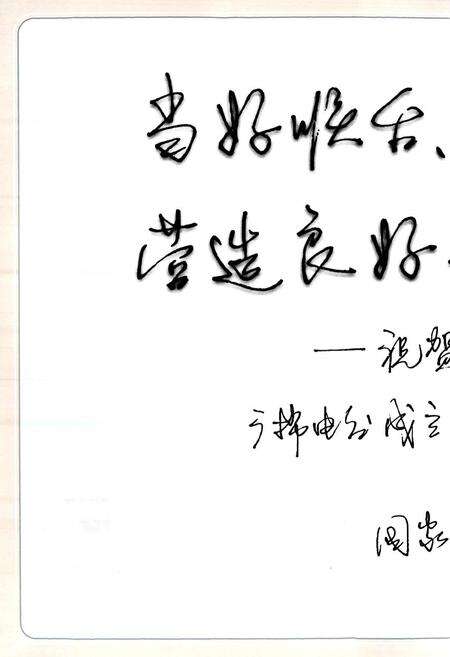 当好喉舌、
营造良好
——祝贺
广播电台成立
国家